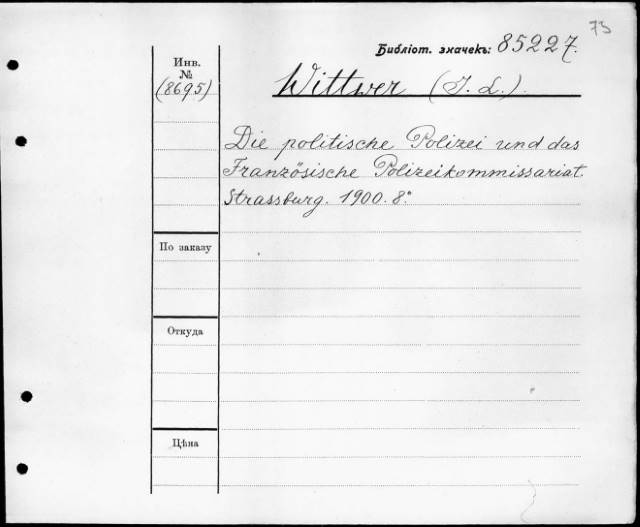 73
Библіот. значекъ: 85227.
Инв.
№
(8695)
Wittwer (J. L.).
Die politische Polizei und das
Französische Polizeikommissariat.
Strassburg. 1900. 8º
По заказу
Откуда
Цѣна